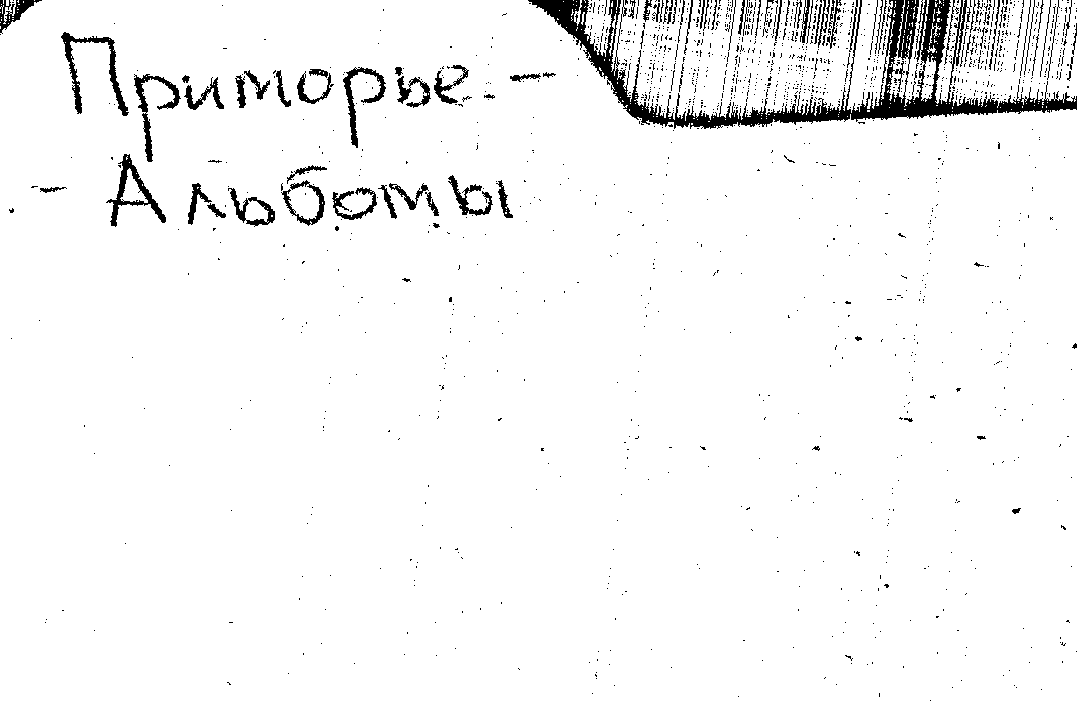 Приморье -
- Альбомы